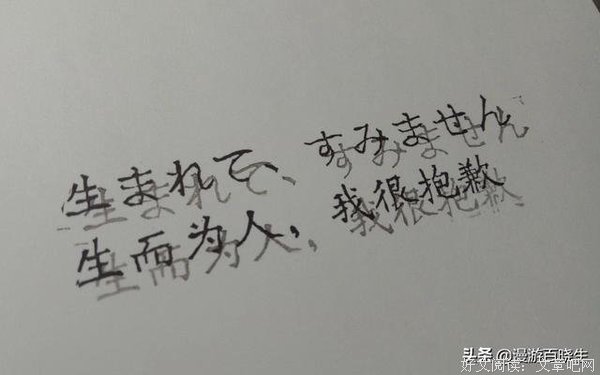 生まれて、すみません
生而为人，我很抱歉
头条 @漫游百晓生
好文阅读：文章吧网